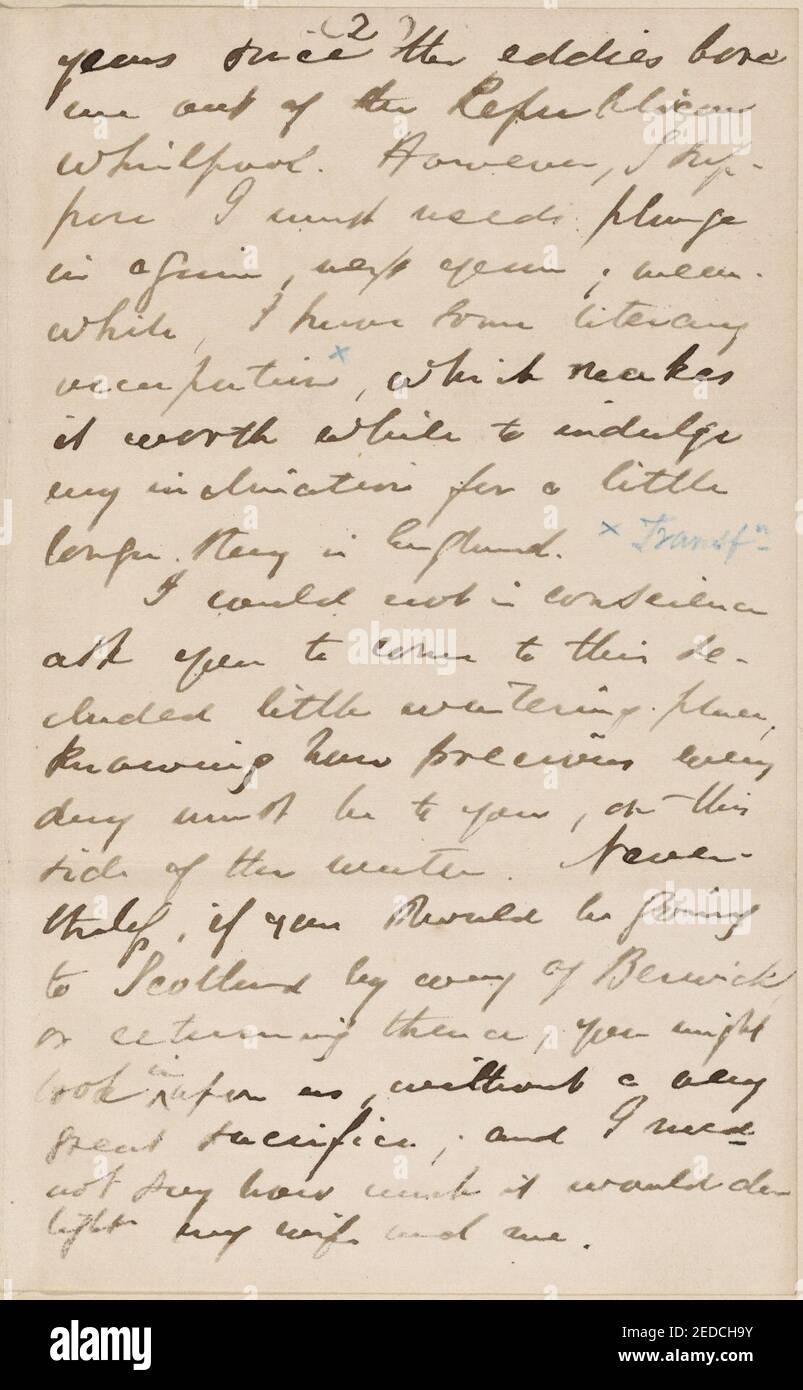 (2)
years since the eddies bore
me out of the Republican
whirlpool. However, I sup-
pose I must needs plunge
in again, next year; mean-
while, I have some literary
occupation x, which makes
it worth while to indulge
my inclination for a little
longer stay in England. x Transfn
I could not in conscience
ask you to come to this se-
cluded little watering-place,
knowing how precious every
day must be to you, on this
side of the water. Never-
theless, if you should be going
to Scotland by way of Berwick,
or returning thence, you might
look in upon us, without a very
great sacrifice; and I need
not say how much it would de-
light my wife and me.
alamy
alamy
alamy
Image ID: 2EDCH9Y
www.alamy.com